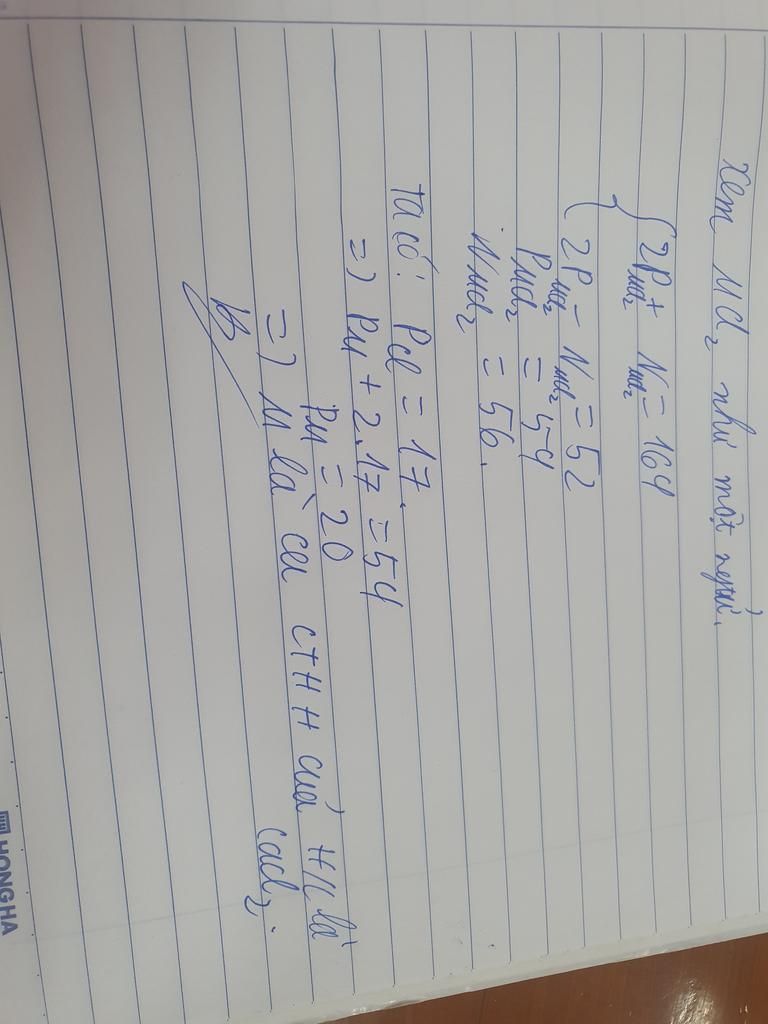 Xem MCl2 như một ngtử.
{ 2PMCl2 + NMCl2 = 164
2PMCl2 - NMCl2 = 52
PMCl2 = 54
NMCl2 = 56.
Ta có: PCl = 17.
=) PM + 2.17 = 54
PM = 20
=) M là Ca CTHH của H/c là
CaCl2.
HONG HA